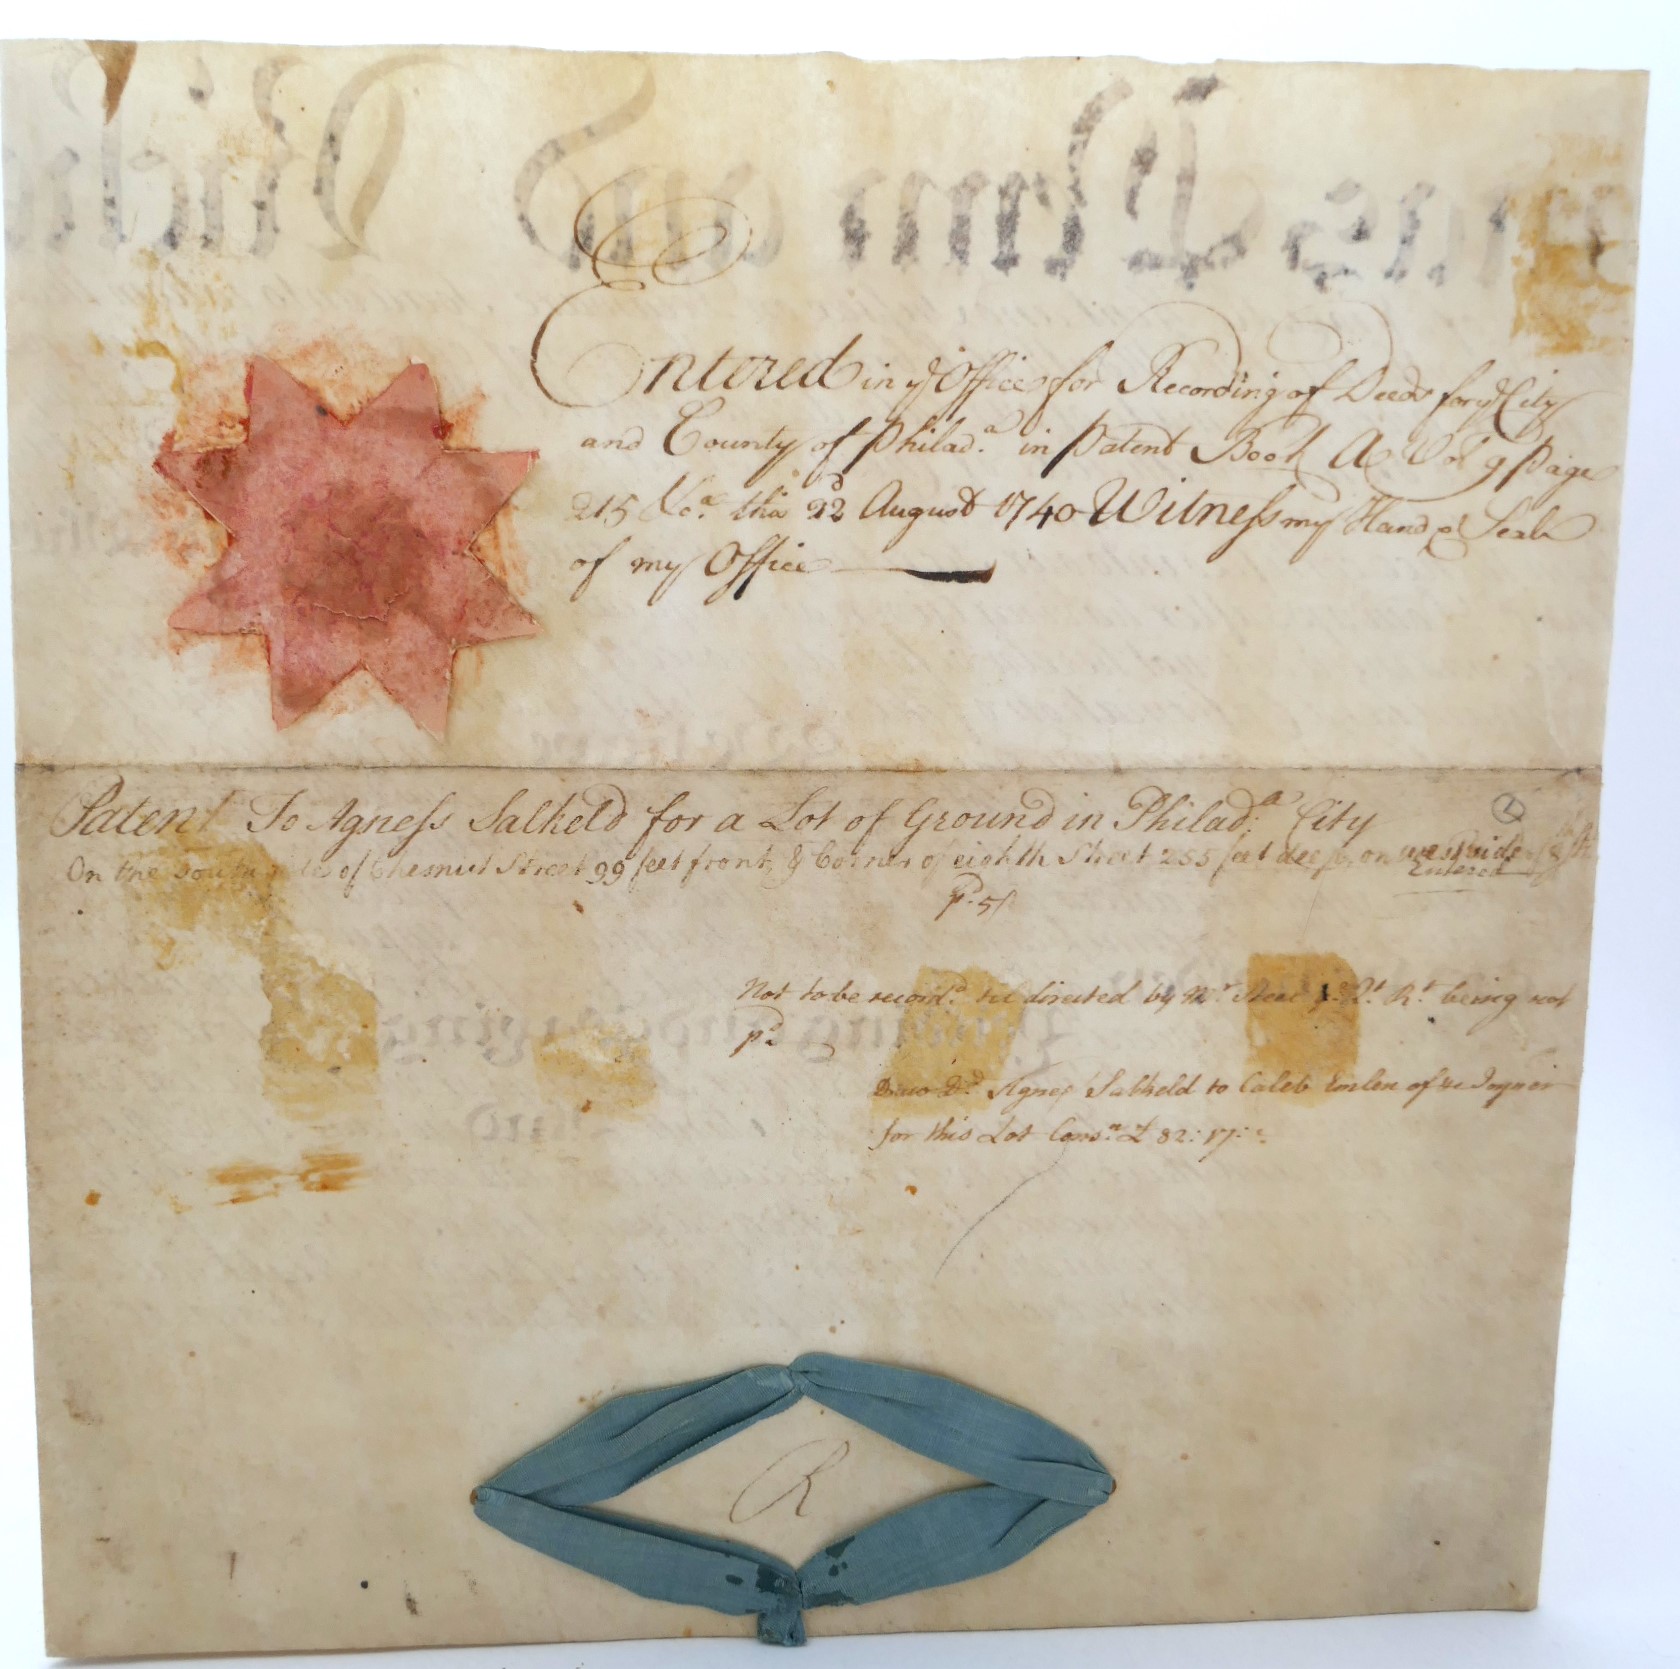 Entered in ye Office for Recording of Deeds for ye City
and County of Philada. in Patent Book A Vol 9 Page
215 &ca. the 22d August 1740 Witness my Hand & Seale
of my Office
Patent To Agness Salkeld for a Lot of Ground in Philada. City
On the South side of Chesnut Street 99 feet front, & Corner of eighth Street 255 feet deep, on west side of 8th St
Entered
pd. 5/
Not to be recordd. til directed by Mr. being not
pd.
Dd. Agness Salkeld to Caleb Emlen of
for this Lot Consn. £ 82: 17:
R